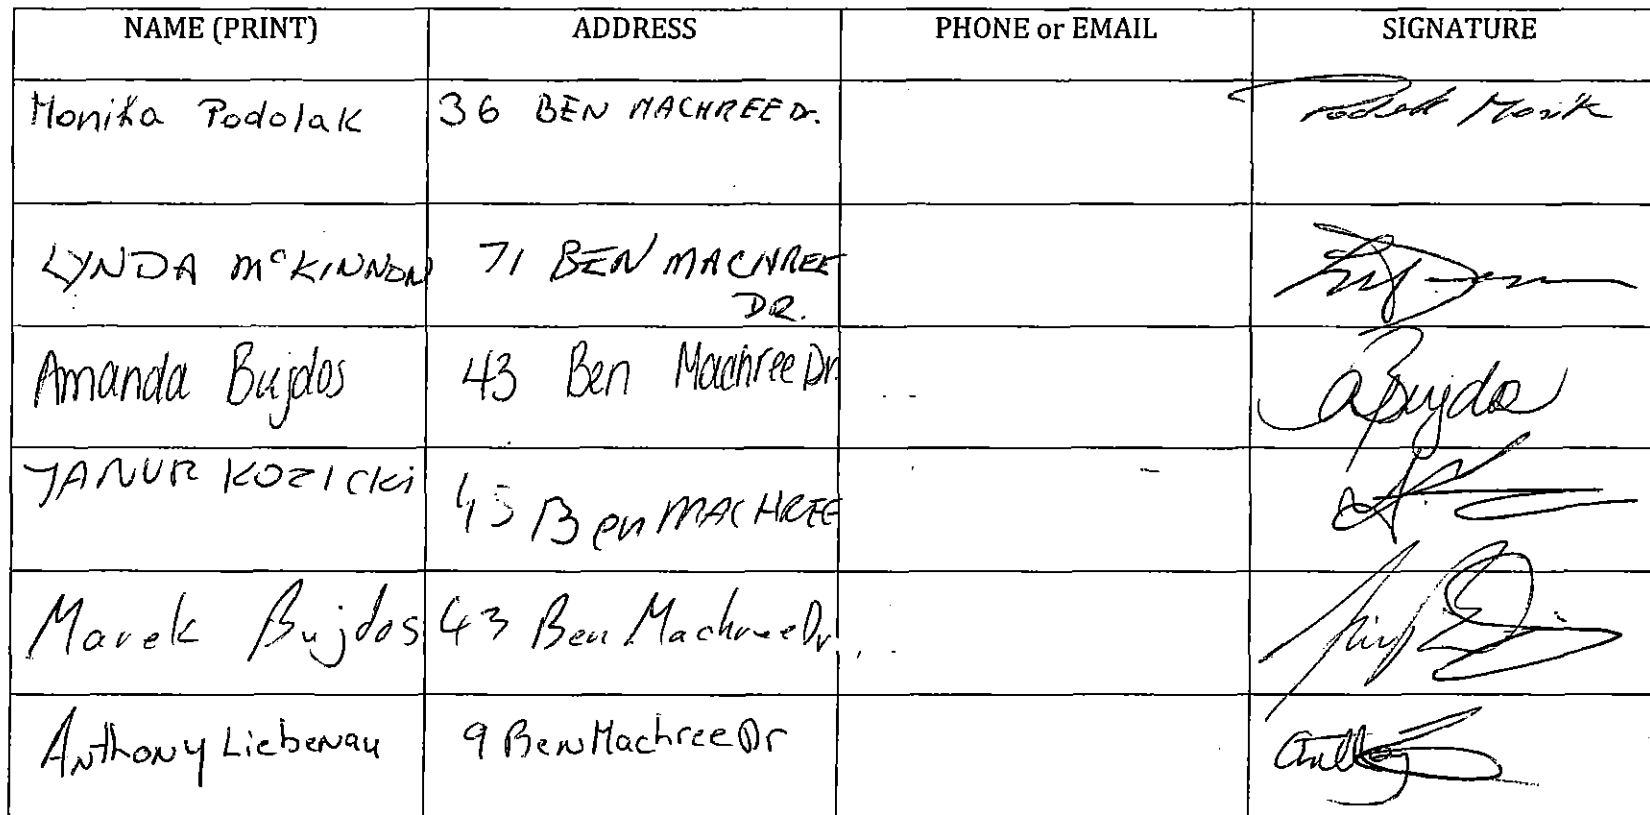 NAME (PRINT) ADDRESS PHONE or EMAIL SIGNATURE
Monika Podolak 36 BEN MACHREE Dr.
LYNDA McKINNON 71 BEN MACHREE
DR.
Amanda Bujdos 43 Ben Machree Dr. ABujdos
JANUR KOZICKi 45 Ben MACHREE
Marek Bujdos 43 Ben Machree Dr
Anthony Liebenau 9 Ben Machree Dr